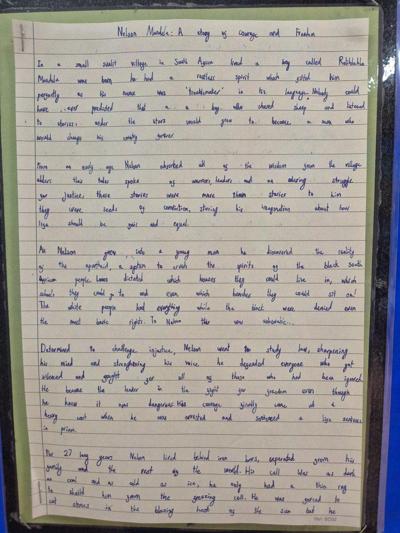 Nelson Mandela: A story of courage and Freedom
In a small sunlit village in South Africa lived a boy called Rolihlahla
Mandela was born he had a restless spirit which suited him
perfectly as the name was 'troublemaker' in his language. Nobody could
have ever predicted that a boy who chased sheep and listened
to stories under the stars would grow to become a man who
would change his country forever
From an early age Nelson absorbed all of the wisdom from the village
elders this tales spoke of warriors, leaders and an enduring struggle
for justice, these stories were more than stories to him
they were seeds of conviction, stirring his imagination about how
life should be fair and equal.
As Nelson grew into a young man he discovered the cruelty
of the apartheid, a system to crush the spirits of the black south
African people. Laws dictated which houses they could live in, which
schools they could go to and even which benches they could sit on!
The white people had everything while the black were denied even
the most basic rights. To Nelson this was
Determined to challenge injustice, Nelson went to study law, sharpening
his mind and strengthening his voice, he defended everyone who got
silenced and fought for all of those who had been ignored.
He became the leader in the fight for freedom even though
he knew it was dangerous. His courage came at a
heavy cost when he was arrested and sentenced a life sentence
in prison.
For 27 long years Nelson lived behind iron bars, separated from his
family and the rest of the world. His cell was as dark
as coal and as cold as ice, he only had a thin rug
to shield him from the freezing cell. He was forced to
cut stones in the blazing heat of the sun but he